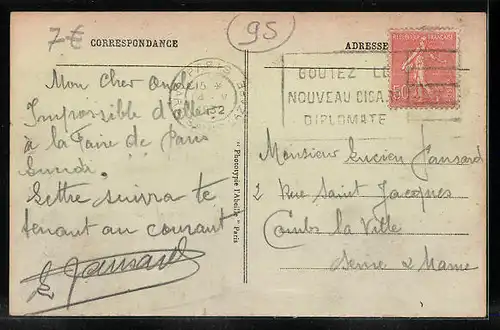 7 €
95
CORRESPONDANCE
ADRESSE
RÉPUBLIQUE FRANÇAISE
50
PARIS
15
32
GOUTEZ LE
NOUVEAU CIGA
DIPLOMATE
Mon cher Oncle
Impossible d'aller
à la Foire de Paris
Lundi.
Lettre suivra te
tenant au courant
L Jansard
"Phototypie l'Abeille" Paris
Monsieur Lucien Jansard
2 Rue Saint Jacques
Combs la Ville
Seine & Marne